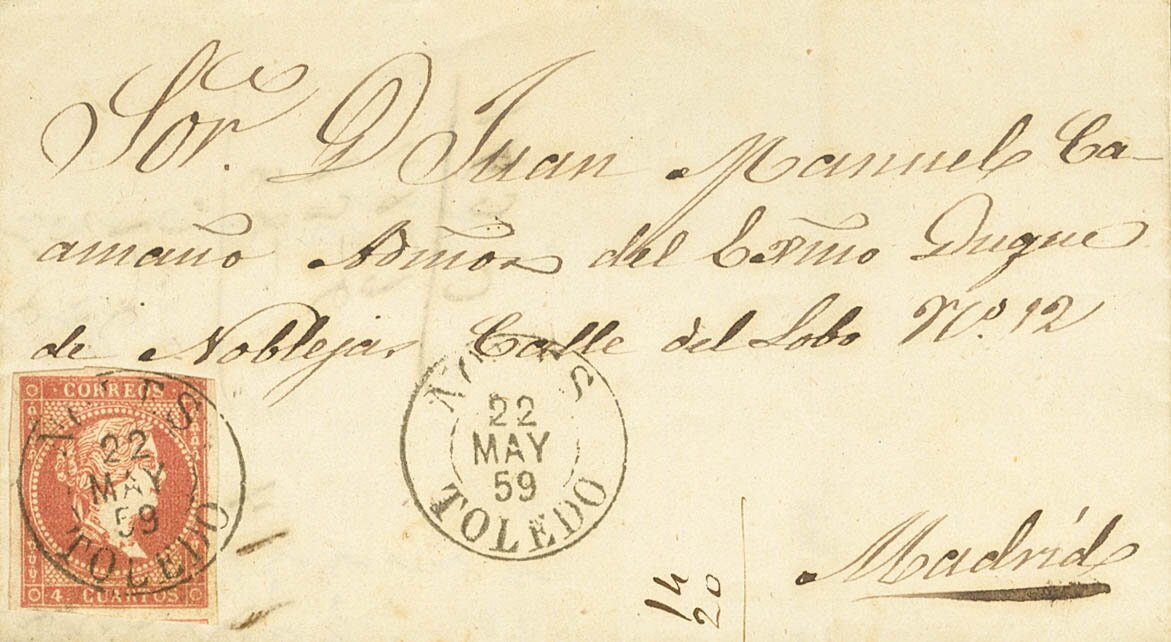 Sor. D Juan Manuel Ca-
amaño Admor del Exmo Duque
de Noblejas Calle del Lobo No. 12
CORREOS
22
MAY
59
TOLEDO
4 CUARTOS
22
MAY
59
TOLEDO
14
20
Madrid